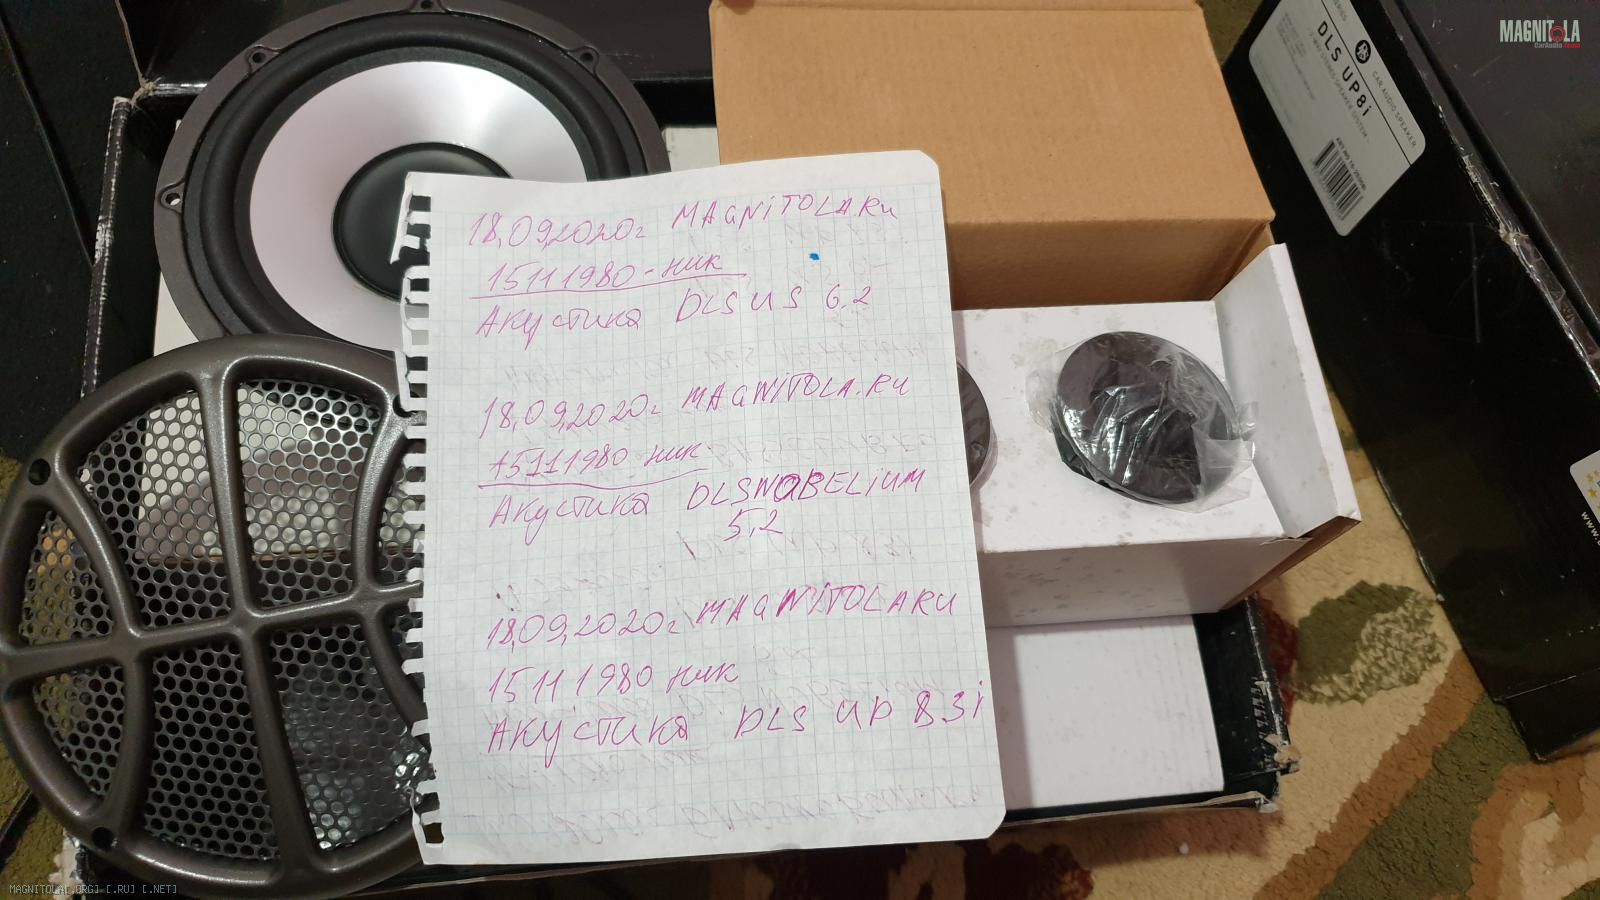 MAGNITOLA
CarAudio Team
DLS UP8i
CAR AUDIO SPEAKER
18.09.2020г MAGNiTOLA.RU
15111980-ник
Акустика DLS US 6.2
18.09.2020г MAGNiTOLA.RU
15111980 ник
Акустика DLSNOBELiUM
5.2
18.09.2020г MAGNiTOLARU
15111980 ник
Акустика DLS UP 83i
www.
MAGNITOLA[.ORG] [.RU] [.NET]